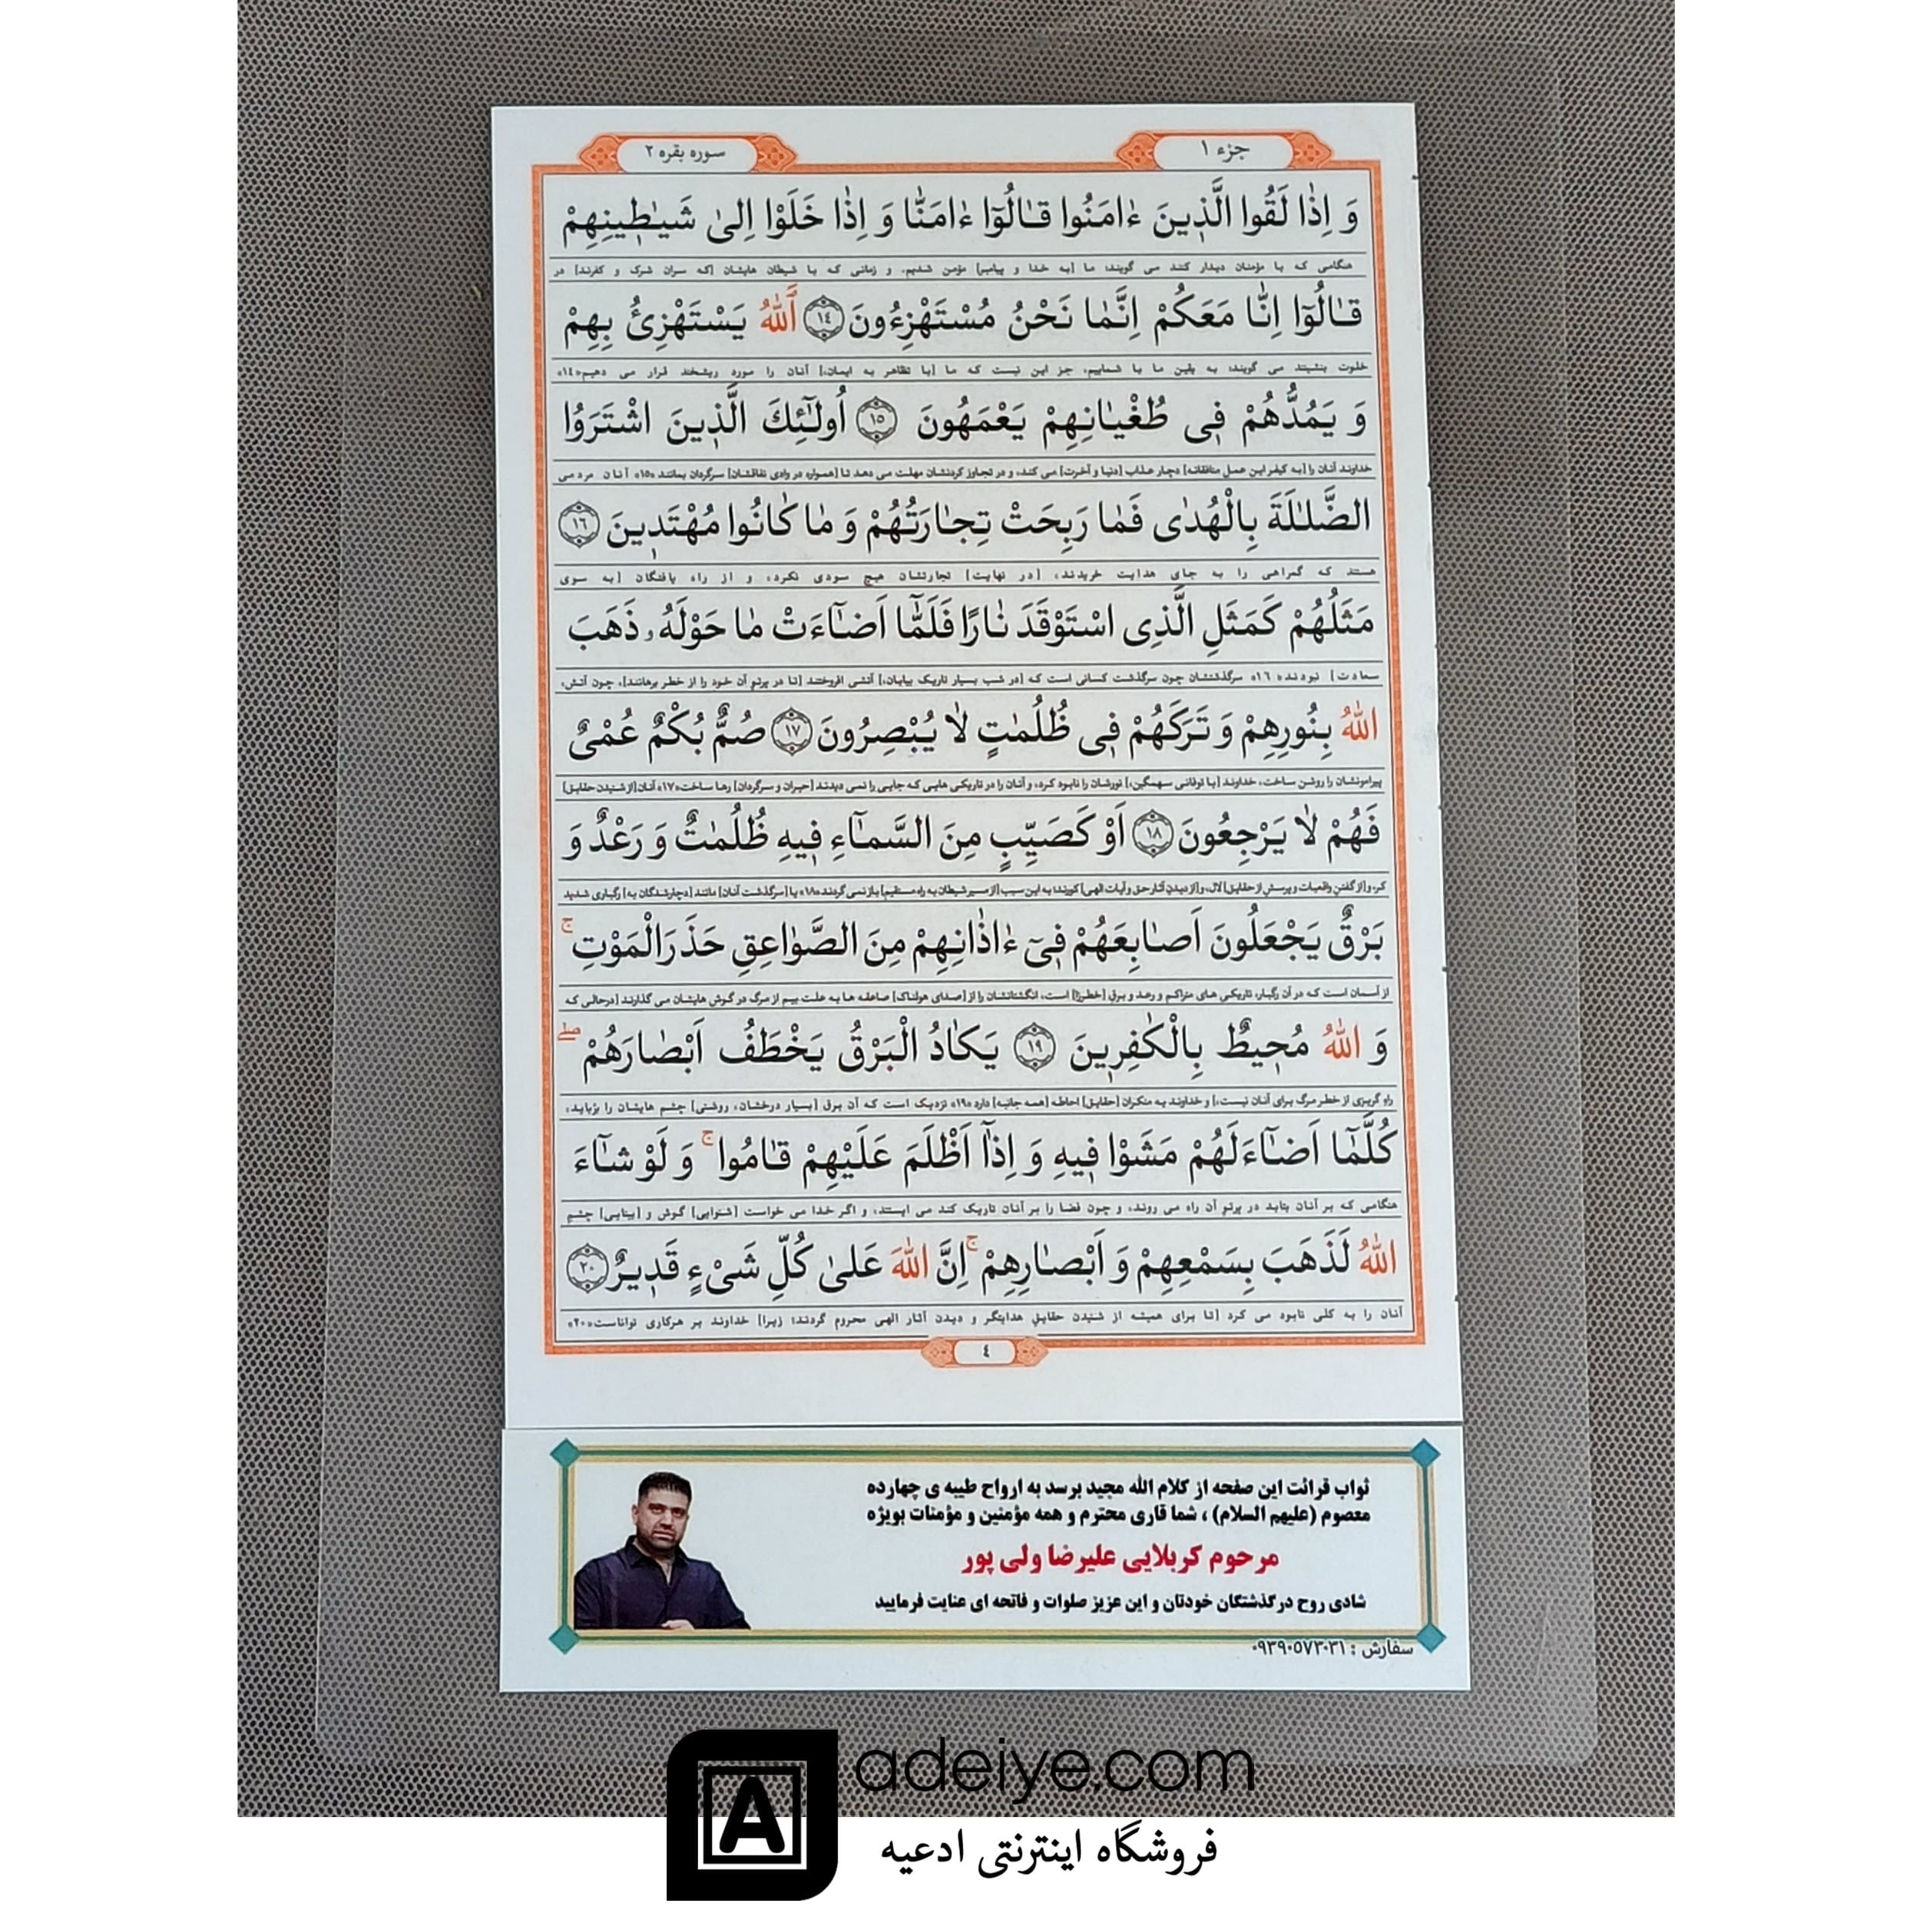 جزء ۱
سوره بقره ۲
وَ اِذٰا لَقُوا الَّذٖينَ ءٰامَنُوا قٰالُوٓا ءٰامَنّٰا وَ اِذٰا خَلَوْا اِلىٰ شَيٰطٖينِهِمْ
هنگامی که با مؤمنان دیدار کنند می گویند: ما [به خدا و پیامبر] مؤمن شدیم. و زمانی که با شیطان هایشان [که سران شرک و کفرند] در
قٰالُوٓا اِنّٰا مَعَكُمْ اِنَّمٰا نَحْنُ مُسْتَهْزِءُونَ ﴿١٤﴾ اَللّٰهُ يَسْتَهْزِئُ بِهِمْ
خلوت بنشینند می گویند: به یقین ما با شماییم، جز این نیست که ما [با تظاهر به ایمان،] آنان را مورد ریشخند قرار می دهیم«۱٤»
وَ يَمُدُّهُمْ فٖى طُغْيٰانِهِمْ يَعْمَهُونَ ﴿١٥﴾ اُولٰٓئِكَ الَّذٖينَ اشْتَرَوُا
خداوند آنان را [به کیفر این عمل منافقانه] دچار عذاب [دنیا و آخرت] می کند، و در تجاوز کردنشان مهلت می دهد تا [همواره در وادی نفاقشان] سرگردان بمانند «۱۵» آنان مردمی
الضَّلٰلَةَ بِالْهُدٰى فَمٰا رَبِحَتْ تِجٰارَتُهُمْ وَ مٰا كٰانُوا مُهْتَدٖينَ ﴿١٦﴾
هستند که گمراهی را به جای هدایت خریدند، [در نهایت] تجارتشان هیچ سودی نکرد، و از راه یافتگان [به سوی
مَثَلُهُمْ كَمَثَلِ الَّذِى اسْتَوْقَدَ نٰارًا فَلَمّٰٓا اَضٰٓاءَتْ مٰا حَوْلَهُۥ ذَهَبَ
سعادت] نبودند«۱٦» سرگذشتشان چون سرگذشت کسانی است که [در شب بسیار تاریک بیابان،] آتشی افروختند [تا در پرتو آن خود را از خطر برهانند]، چون آتش،
اللّٰهُ بِنُورِهِمْ وَ تَرَكَهُمْ فٖى ظُلُمٰتٍ لٰا يُبْصِرُونَ ﴿١٧﴾ صُمٌّ بُكْمٌ عُمْىٌ
پیرامونشان را روشن ساخت، خداوند [با توفانی سهمگین،] نورشان را نابود کرد، و آنان را در تاریکی هایی که جایی را نمی دیدند [حیران و سرگردان] رها ساخت«۱۷» آنان[از شنیدن حقایق]
فَهُمْ لٰا يَرْجِعُونَ ﴿١٨﴾ اَوْ كَصَيِّبٍ مِنَ السَّمٰٓاءِ فٖيهِ ظُلُمٰتٌ وَ رَعْدٌ وَ
کر، و[از گفتن واقعیات و پرسش از حقایق] لال، و[از دیدن آثار حق و آیات الهی] کورند؛ به این سبب [از مسیر شیطان به راه مستقیم] باز نمی گردند«۱۸» یا [سرگذشت آنان] مانند [دچارشدگان به] رگباری شدید
بَرْقٌ يَجْعَلُونَ اَصٰابِعَهُمْ فٖىٓ ءٰاذٰانِهِمْ مِنَ الصَّوٰاعِقِ حَذَرَ الْمَوْتِ ۚ
از آسمان است که در آن رگبار، تاریکی های متراکم و رعد و برق [خطرزا] است، انگشتانشان را از [صدای هولناک] صاعقه ها به علت بیم از مرگ در گوش هایشان می گذارند [درحالی که
وَ اللّٰهُ مُحٖيطٌ بِالْكٰفِرٖينَ ﴿١٩﴾ يَكٰادُ الْبَرْقُ يَخْطَفُ اَبْصٰارَهُمْ ۖ
راه گریزی از خطر مرگ برای آنان نیست،] و خداوند به منکران [حقایق] احاطه [همه جانبه] دارد «۱۹» نزدیک است که آن برق [بسیار درخشان، روشنی] چشم هایشان را برباید،
كُلَّمٰٓا اَضٰٓاءَ لَهُمْ مَشَوْا فٖيهِ وَ اِذٰٓا اَظْلَمَ عَلَيْهِمْ قٰامُوا ۚ وَ لَوْ شٰٓاءَ
هنگامی که بر آنان بتابد در پرتو آن راه می روند، و چون فضا را بر آنان تاریک کند می ایستند، و اگر خدا می خواست [شنوایی] گوش و [بینایی] چشم
اللّٰهُ لَذَهَبَ بِسَمْعِهِمْ وَ اَبْصٰارِهِمْ ۚ اِنَّ اللّٰهَ عَلىٰ كُلِّ شَىْءٍ قَدٖيرٌ ﴿٢٠﴾
آنان را به کلی نابود می کرد [تا برای همیشه از شنیدن حقایق هدایتگر و دیدن آثار الهی محروم گردند؛ زیرا] خداوند بر هرکاری تواناست«۲۰»
٤
ثواب قرائت این صفحه از کلام الله مجید برسد به ارواح طیبه ی چهارده
معصوم (علیهم السلام) ، شما قاری محترم و همه مؤمنین و مؤمنات بویژه
مرحوم کربلایی علیرضا ولی پور
شادی روح درگذشتگان خودتان و این عزیز صلوات و فاتحه ای عنایت فرمایید
سفارش : ۰۹۳۹۰۵۷۳۰۳۱
adeiye.com
A
فروشگاه اینترنتی ادعیه